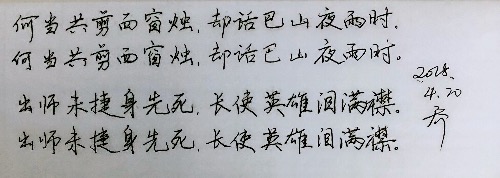 何当共剪西窗烛,却话巴山夜雨时.
何当共剪西窗烛,却话巴山夜雨时。
出师未捷身先死,长使英雄泪满襟。
出师未捷身先死,长使英雄泪满襟。
2018.
4.20